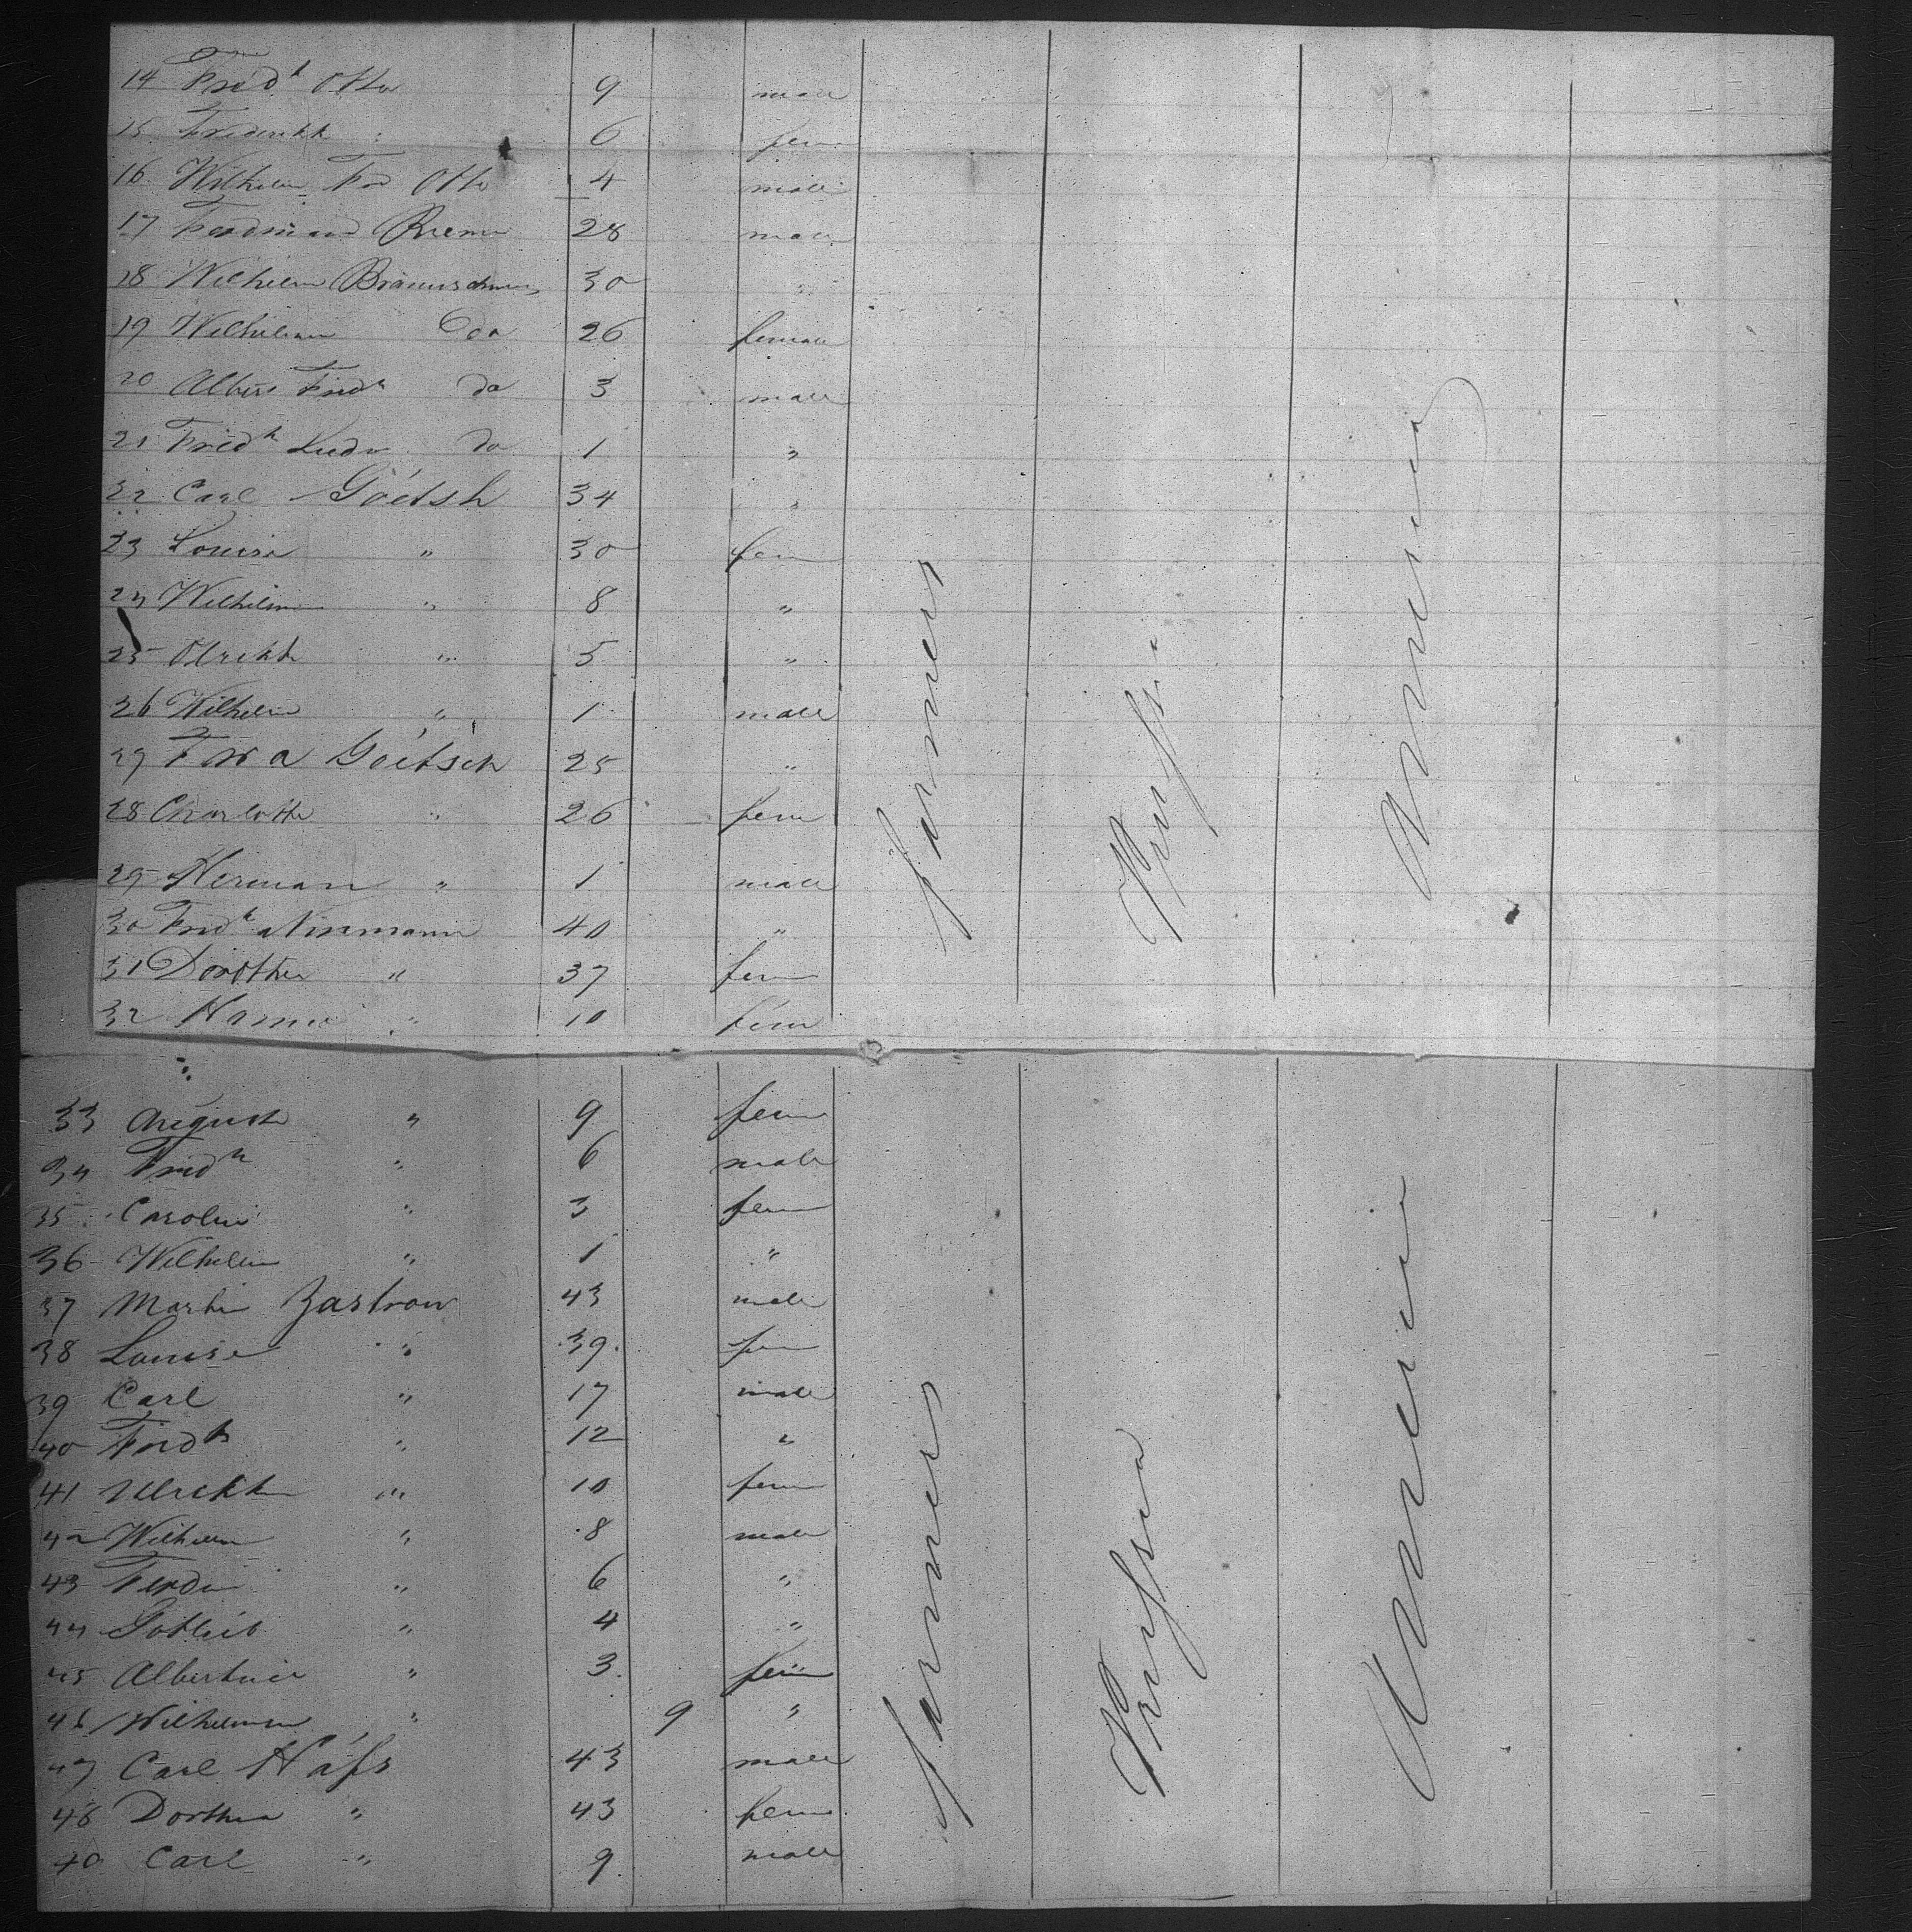 14 Fredk Otto 9 male
15 Frederikk " 6 fem
16 Wilhelm Fr Otto 4 male
17 Ferdinand 28 male
18 Wilhelm 30 "
19 Wilhelmin do 26 female
20 Albert Fredk do 3 male
21 Fredk Ludw do 1 "
22 Carl Goetsh 34 "
23 Louise " 30 fem
24 Wilhelm " 8 "
25 Ulrikke " 5 "
26 Wilhelm " 1 male
27 Goetsch 25 "
28 Charlotte " 26 fem
29 Herman " 1 male
30 Fredk 40 "
31 Dorothea " 37 fem
32 " 10 fem
farmers
Prussia
America
33 Auguste " 9 fem
34 Fredk " 6 male
35 Caroline " 3 fem
36 Wilhelm " 1 "
37 Martin Zastrow 43 male
38 Louise " 39 fem
39 Carl " 17 male
40 Fredk " 12 "
41 Ulrikke " 10 fem
42 Wilhelm " 8 male
43 Ferdin " 6 "
44 Gottlieb " 4 "
45 Albertine " 3 fem
46 Wilhelmine " 9 "
47 Carl Hass 43 male
48 Dorthea " 43 fem
40 Carl " 9 male
farmers
Prussia
America